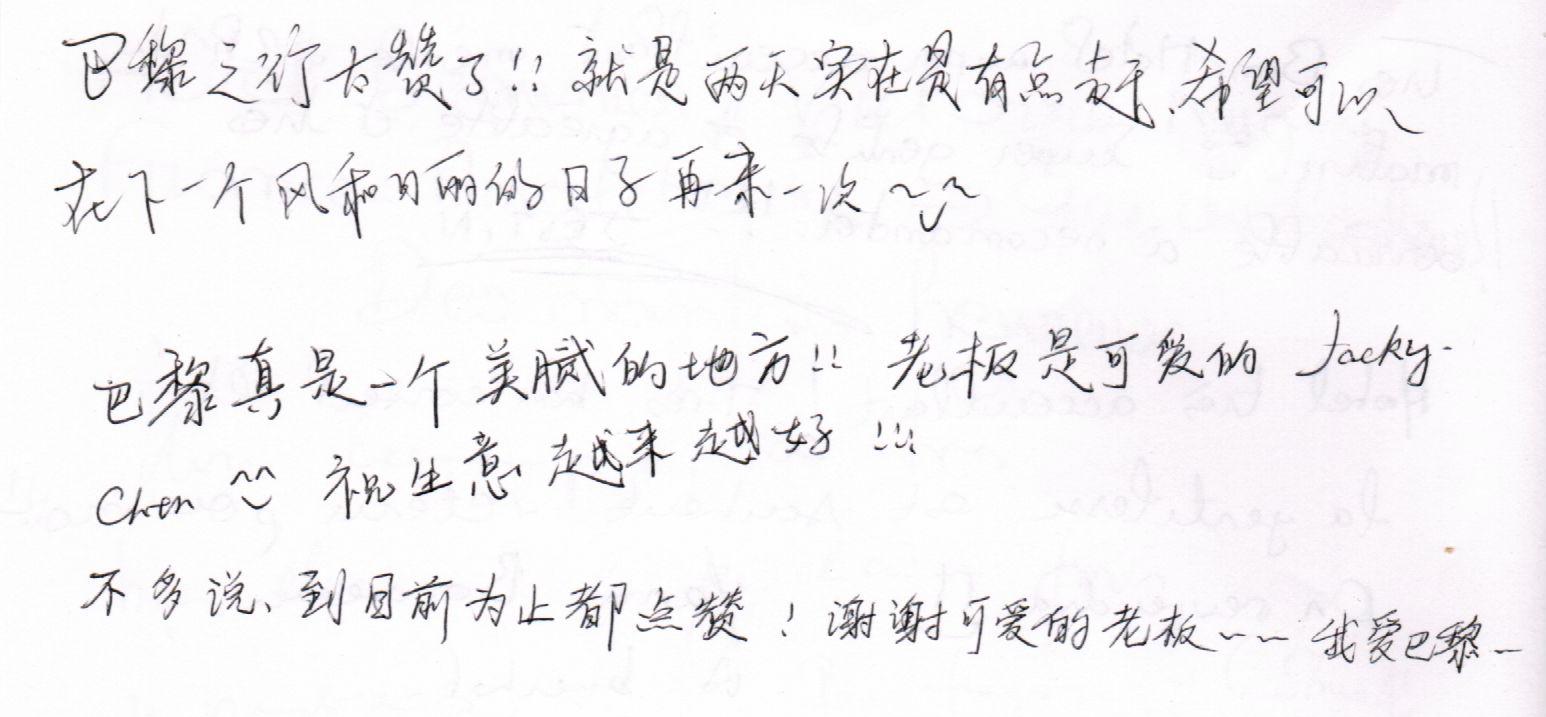 巴黎之行太赞了!! 就是两天实在是有点赶、希望可以
在下一个风和日丽的日子再来一次~
巴黎真是一个美腻的地方!! 老板是可爱的 Jacky.
Chen ^^ 祝生意越来越好 !!!
不多说、到目前为止都点赞! 谢谢可爱的老板~~ 我爱巴黎~